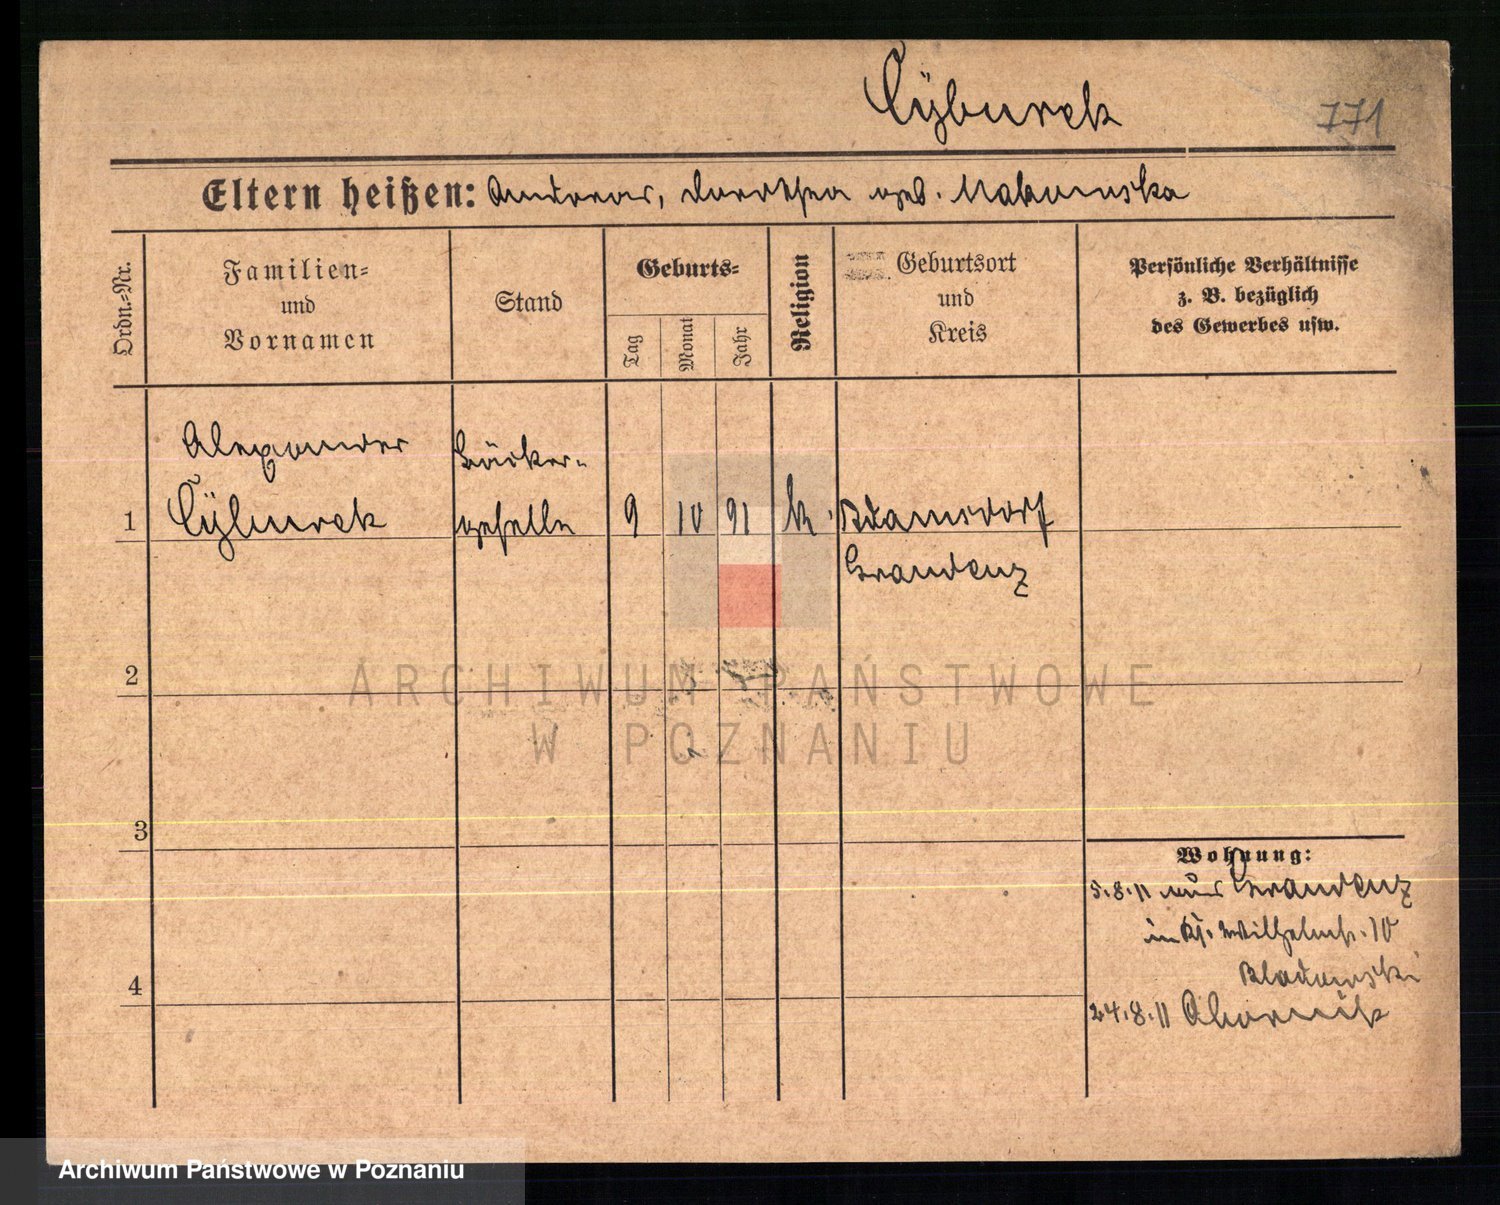 Cÿburek
771
Eltern heißen: Andreas, Dorothea geb. Makowska
Ordn.=Nr.
Familien=
und
Vornamen
Stand
Geburts=
Tag
Monat
Jahr
Religion
Geburtsort
und
Kreis
Persönliche Verhältnisse
z. B. bezüglich
des Gewerbes usw.
Alexander
Bäcker-
1 Cÿburek geselle 9 10 91 k Adamsdorf
Graudenz
ARCHIWUM PAŃSTWOWE
W POZNANIU
2
3
4
Wohnung:
5.8.11 aus Graudenz
Wilhelmstr. 10
24.8.11 Obornik
Archiwum Państwowe w Poznaniu